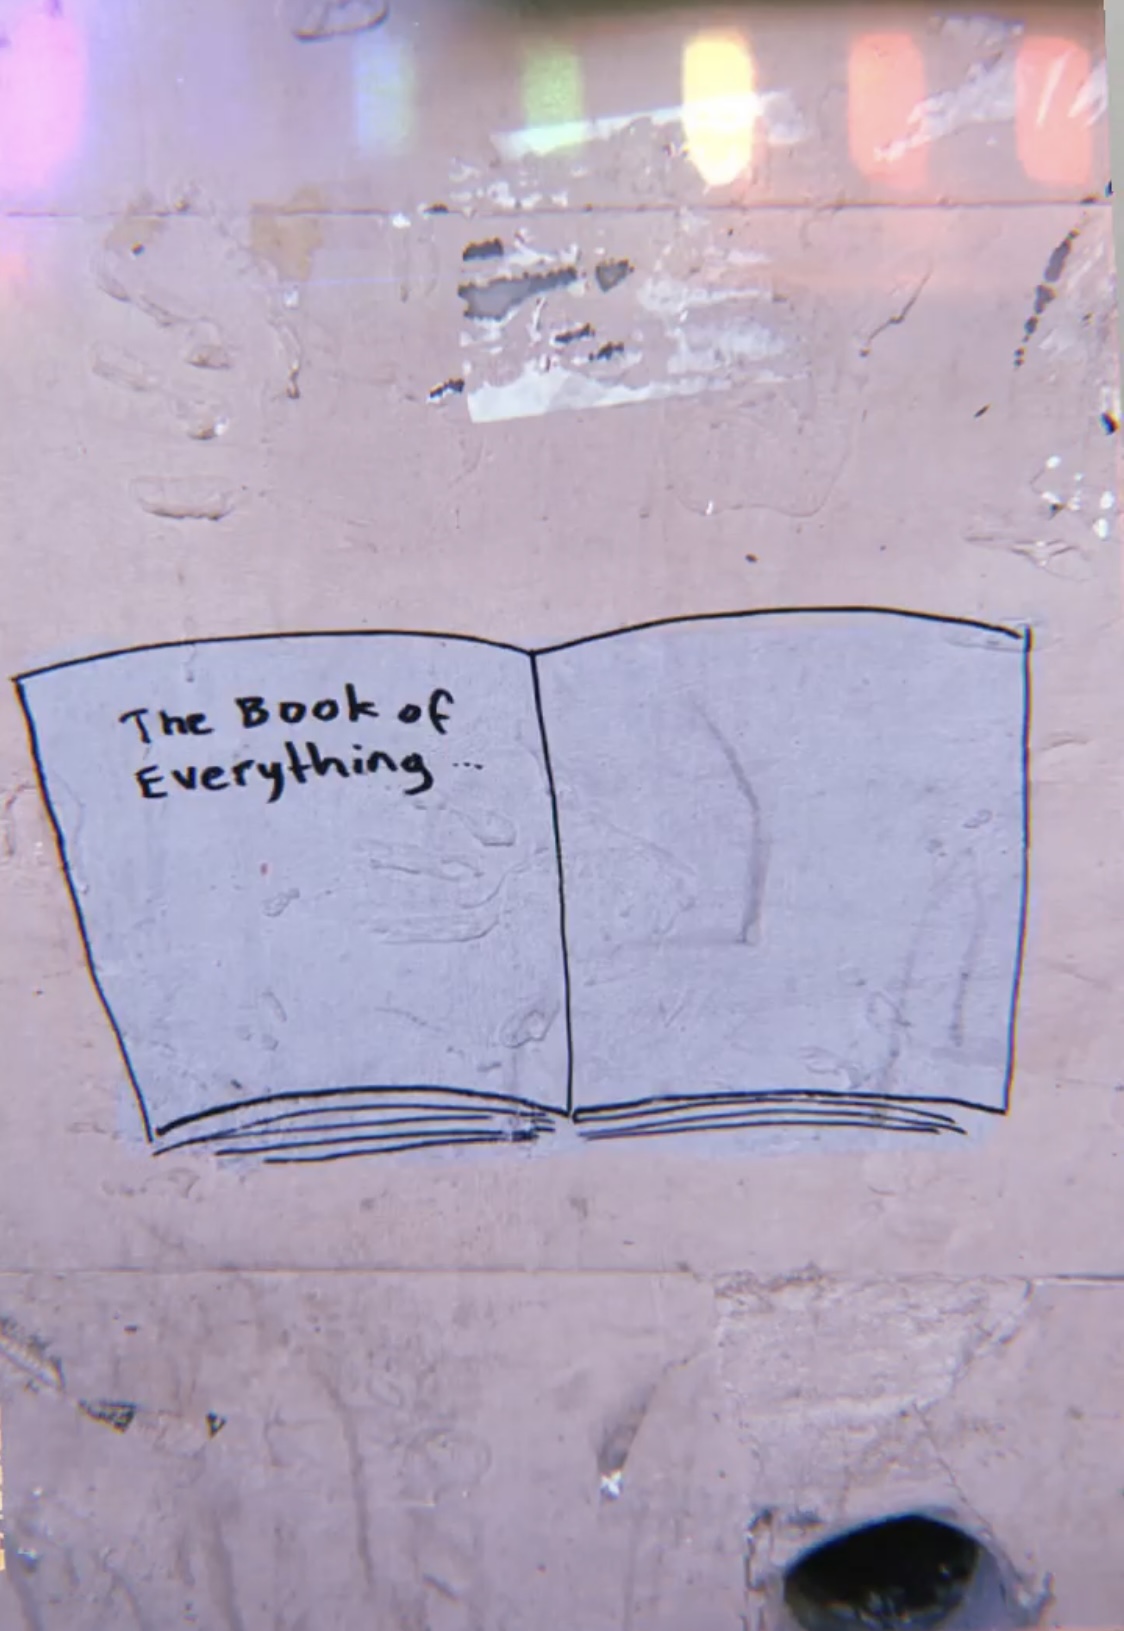 The Book of
Everything ...